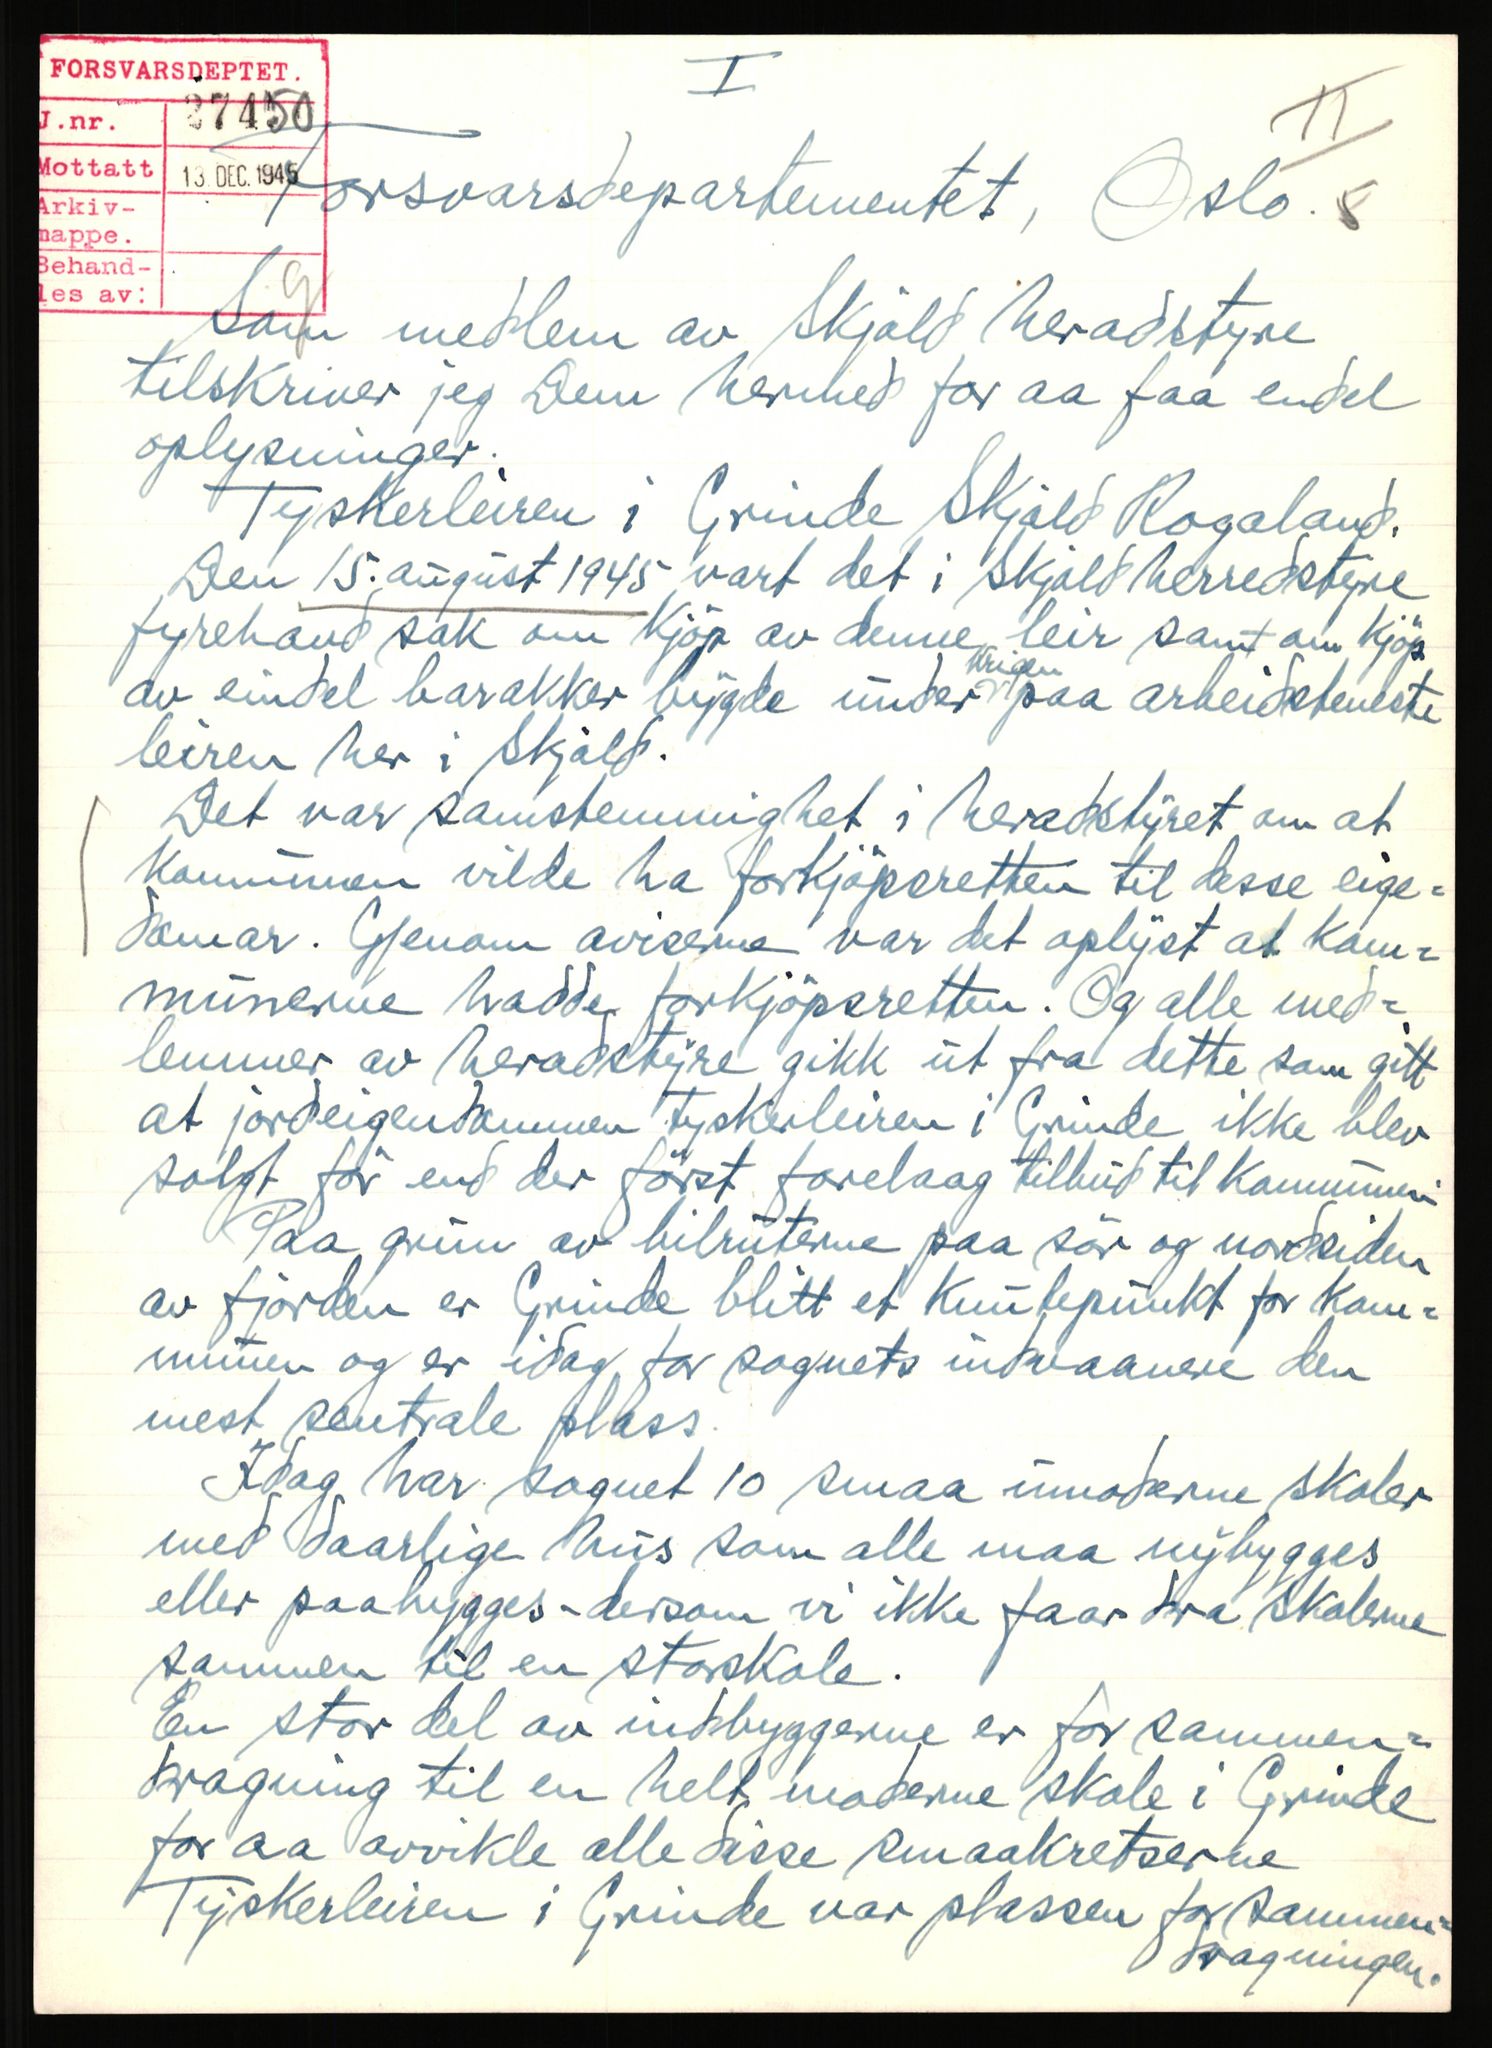 I
11
FORSVARSDEPTET.
J.nr. 27450
Mottatt 13. DEC. 1945
Arkiv-
mappe.
Behand-
les av:
Forsvarsdepartementet, Oslo.
Som medlem av Skjold heradstyre
tilskriver jeg Dem hermed for aa faa endel
oplysninger.
Tyskerleiren i Grinde Skjold Rogaland.
Den 15. august 1945 vart det i Skjold herredstyre
fyrehavd sak om kjöp av denne leir samt om kjöp
av eindel barakker bygde under krigen paa arbeidsteneste
leiren her i Skjold.
Det var samstemmighet i heradstyret om at
kommunen vilde ha forkjöpsretten til desse eige=
domar. Gjenom aviserne var det oplyst at kom=
munerne hadde forkjöpsretten. Og alle med=
lemmer av heradstyre gikk ut fra dette som gitt
at jordeigendommen tyskerleiren i Grinde ikke blev
solgt för end der först forelaag tilbud til kommunen
Paa grun av bilruterne paa sör og nordsiden
av fjorden er Grinde blitt et knutepunkt for kom=
munen og er idag for sognets indvaanere den
mest sentrale plass.
Idag har sognet 10 smaa umoderne skoler
med daarlige hus som alle maa nybygges
eller paabygges - dersom vi ikke faar dra skolerne
sammen til en storskole.
En stor del av indbyggerne er for sammen=
dragning til en helt moderne skole i Grinde
for aa avvikle alle disse smaakretserne
Tyskerleiren i Grinde var plassen for sammen=
dragningen.